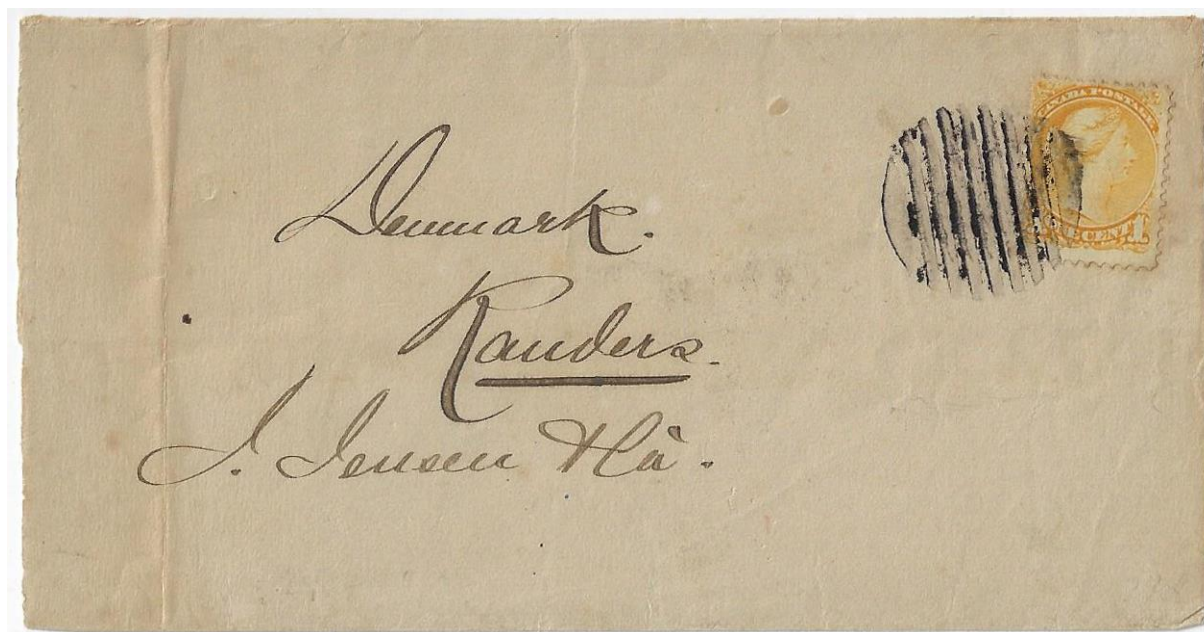 CANADA POSTAGE
CENT 1
Denmark.
Randers.
J. Jensen